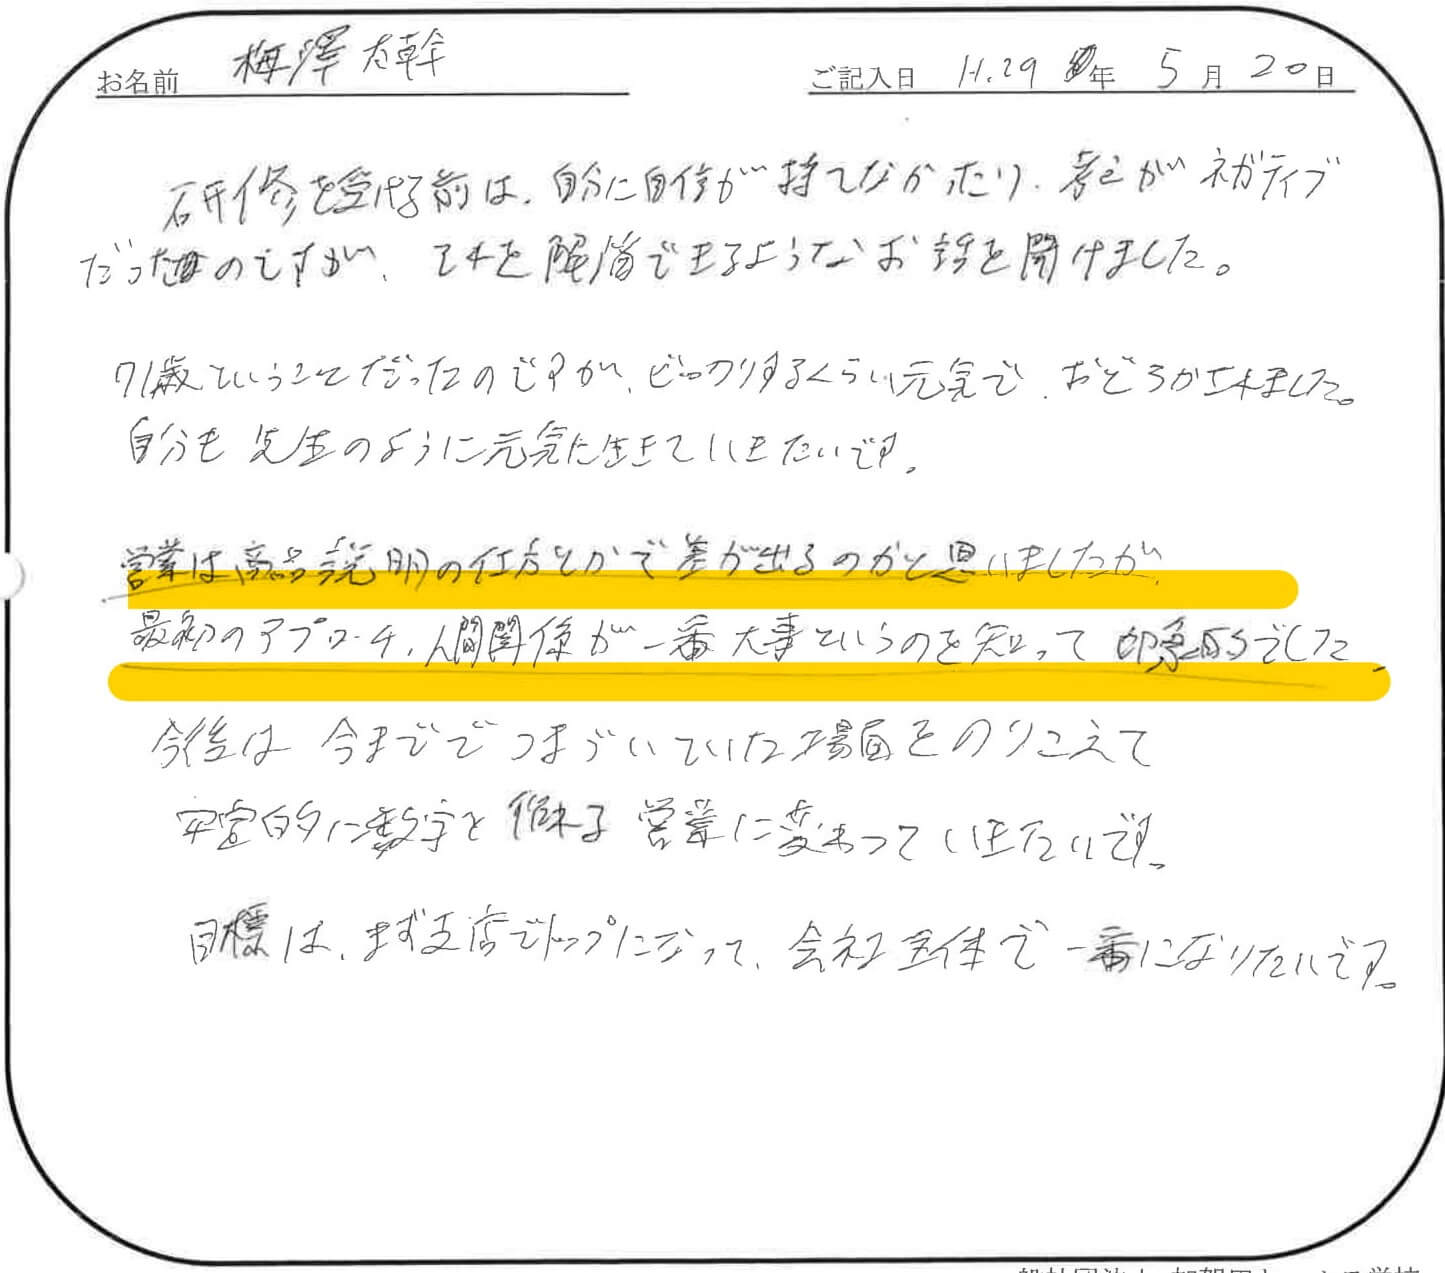 お名前 梅澤 太幹
ご記入日 H.29年 5月20日
研修を受ける前は、自分に自信が持てなかったり、考えがネガティブ
だったのですが、それを解消できるようなお話を聞けました。
71歳ということだったのですが、ビックリするくらい元気で、おどろかされました。
自分も先生のように元気に生きていきたいです。
営業は商品説明の仕方とかで差が出るのかと思いましたが、
最初のアプローチ、人間関係が一番大事というのを知って印象的でした
今後は今まででつまづいていた場面をのりこえて
安定的に数字を作れる営業に変わっていきたいです。
目標は、まず支店でトップになって、会社全体で一番になりたいです。